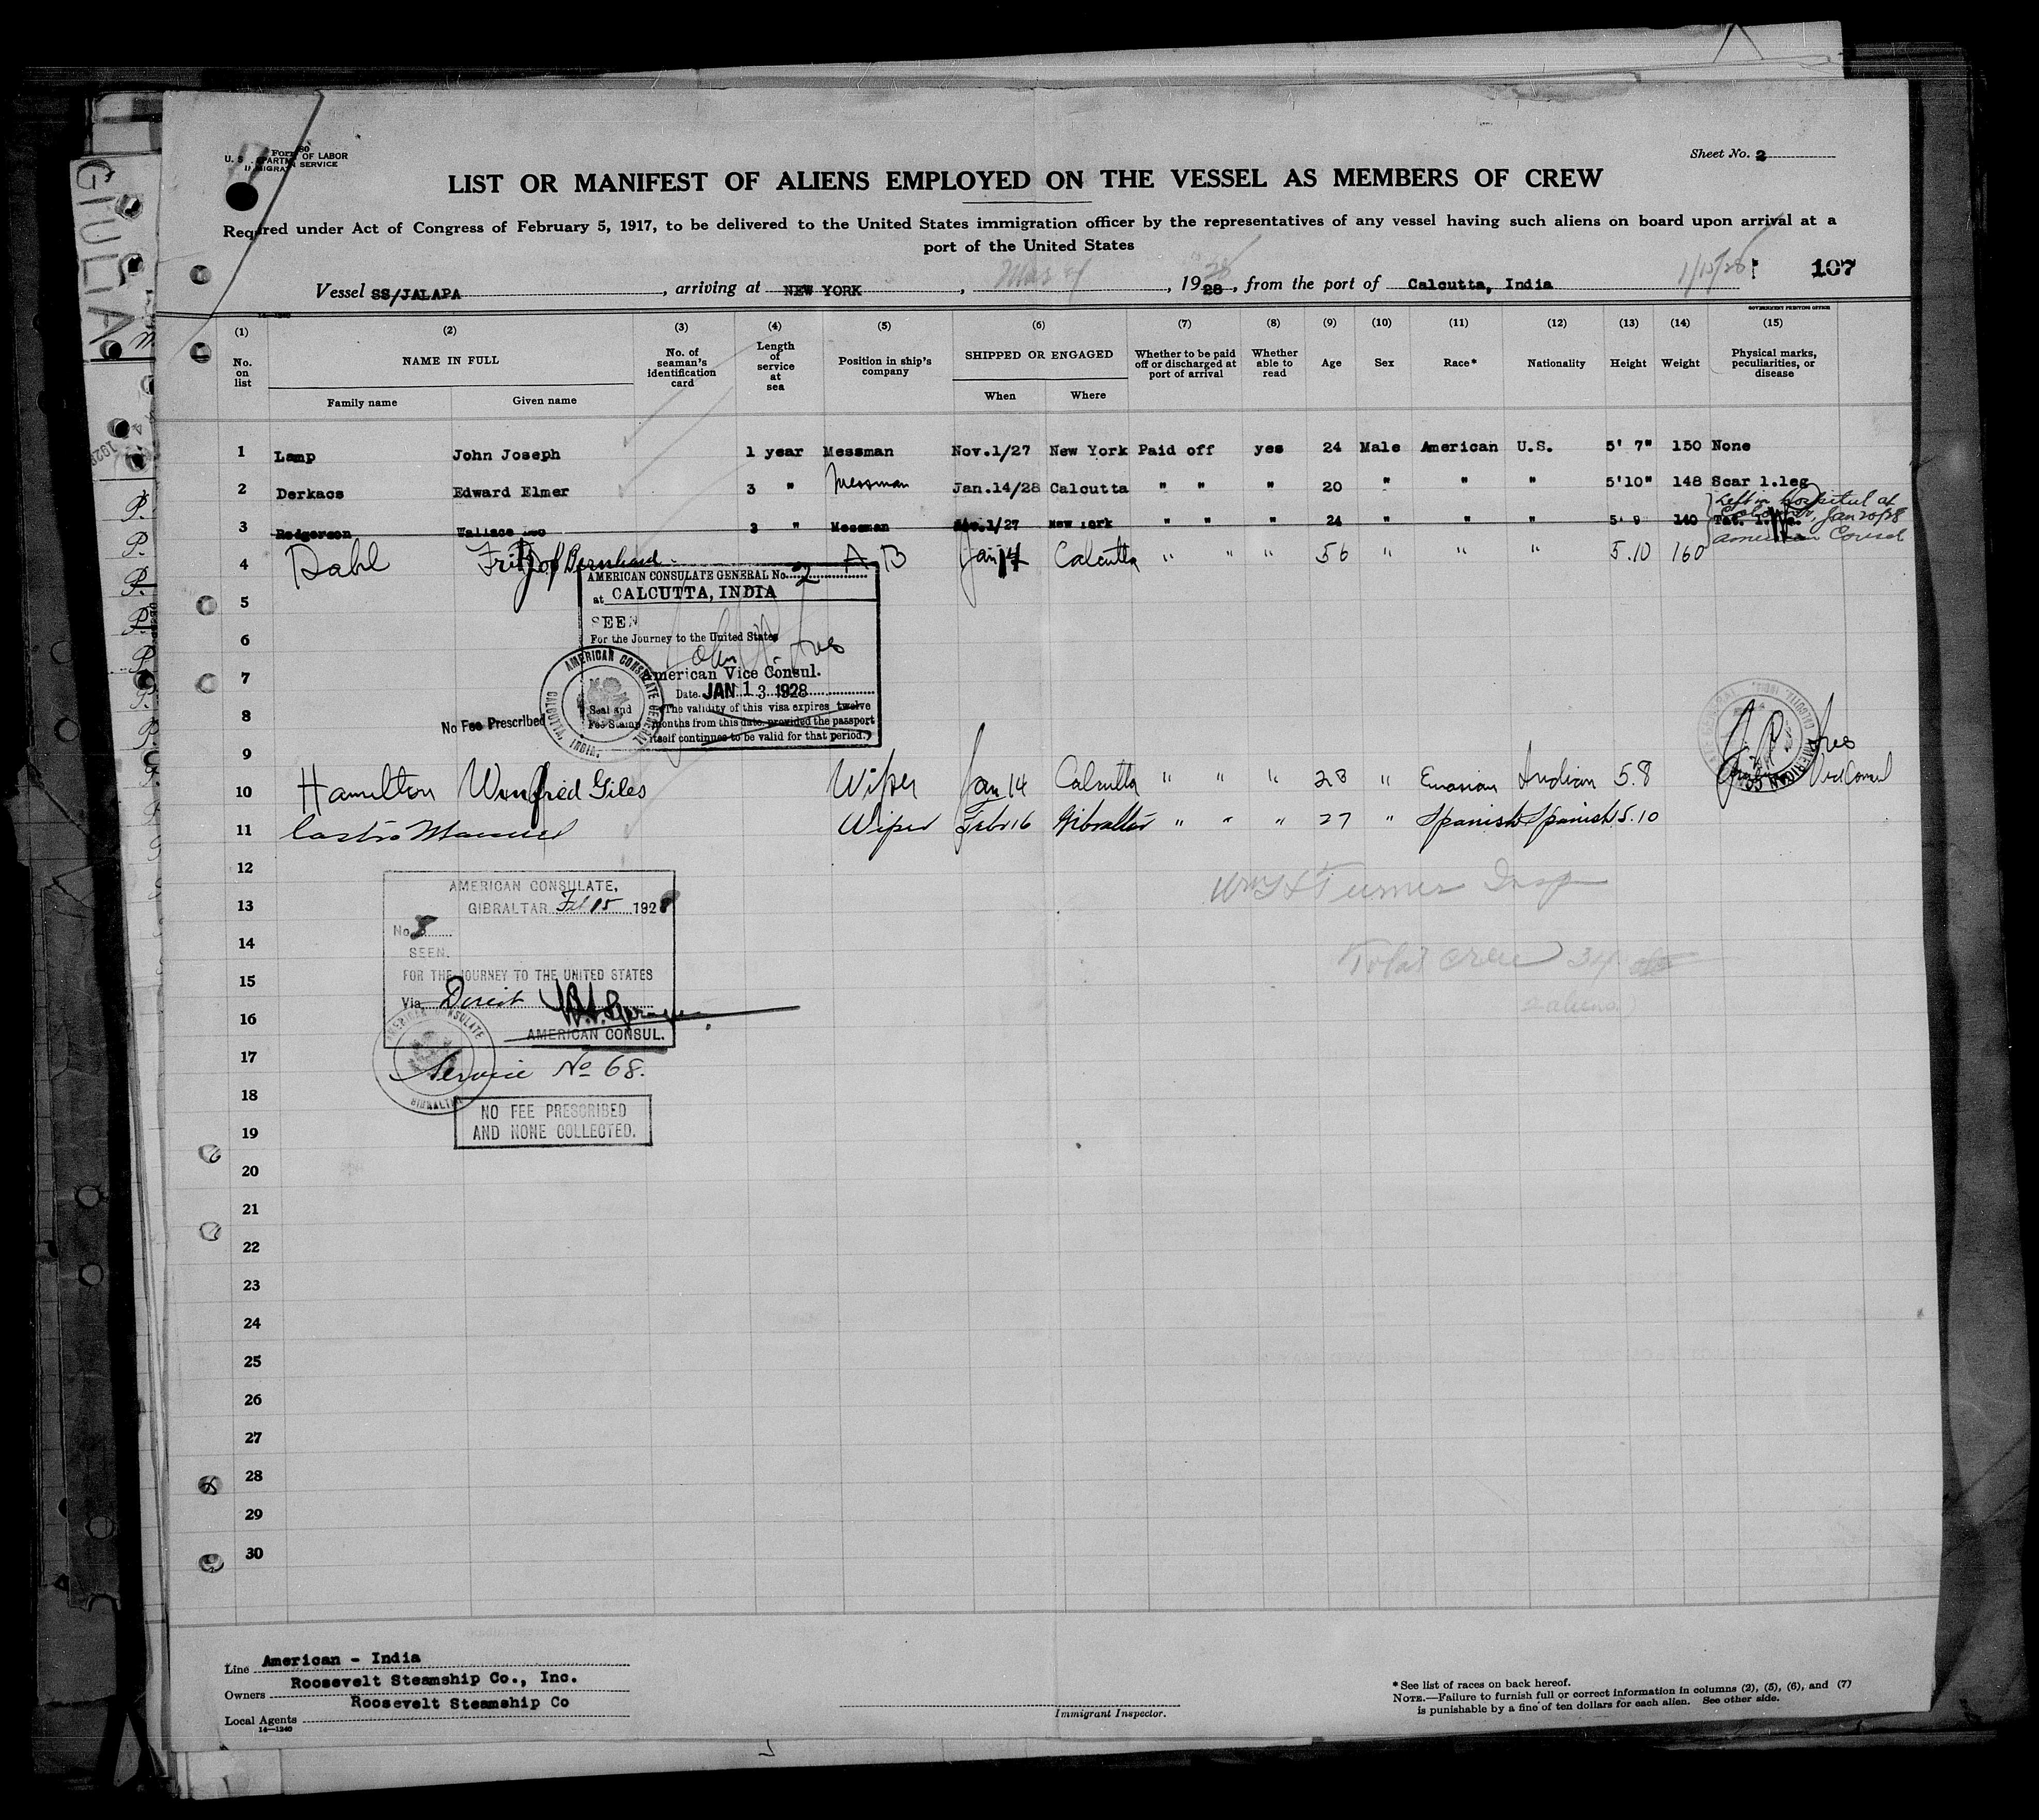 Form 680
U. S. DEPARTMENT OF LABOR
IMMIGRATION SERVICE
Sheet No. 2
LIST OR MANIFEST OF ALIENS EMPLOYED ON THE VESSEL AS MEMBERS OF CREW
Required under Act of Congress of February 5, 1917, to be delivered to the United States immigration officer by the representatives of any vessel having such aliens on board upon arrival at a
port of the United States
Vessel SS/JALAPA, arriving at NEW YORK, Mar 4, 1928, from the port of Calcutta, India 1/15/28 107
14-1240
GOVERNMENT PRINTING OFFICE
(1) (2) (3) (4) (5) (6) (7) (8) (9) (10) (11) (12) (13) (14) (15)
No. on list NAME IN FULL No. of seaman's identification card Length of service at sea Position in ship's company SHIPPED OR ENGAGED Whether to be paid off or discharged at port of arrival Whether able to read Age Sex Race* Nationality Height Weight Physical marks, peculiarities, or disease
Family name Given name When Where
1 Lamp John Joseph 1 year Messman Nov.1/27 New York Paid off yes 24 Male American U.S. 5' 7" 150 None
2 Derkacs Edward Elmer 3 " Messman Jan.14/28 Calcutta " " " 20 " " " 5'10" 148 Scar l.leg
3 Rodgerson Wallace Leo 3 " Messman Nov.1/27 New York " " " 24 " " " 5' 9 140 Tat.
Left in Hospital at
Colombo, Jan 20/28
American Consul
4 Dahl Fritjof Bernhard A B Jan 14 Calcutta " " " 56 " " " 5.10 160
5
6
7
8
9
AMERICAN CONSULATE GENERAL No. 2
at CALCUTTA, INDIA
SEEN
For the Journey to the United States
American Vice Consul.
Date JAN 13 1928
Seal and Fee Stamp
(The validity of this visa expires twelve
months from this date provided the passport
itself continues to be valid for that period.)
AMERICAN CONSULATE GENERAL
CALCUTTA, INDIA.
No Fee Prescribed
Vice Consul
10 Hamilton Winfred Giles Wiper Jan 14 Calcutta " " " 28 " Eurasian Indian 5.8
11 Castro Manuel Wiper Feb 16 Gibraltar " " " 27 " Spanish Spanish 5.10
12
13
14
15
16
17
18
19
20
21
22
23
24
25
26
27
28
29
30
AMERICAN CONSULATE,
GIBRALTAR Feb 15 1928
No. 8
SEEN.
FOR THE JOURNEY TO THE UNITED STATES
Via Direct
AMERICAN CONSUL.
AMERICAN CONSULATE
GIBRALTAR
Service No 68.
NO FEE PRESCRIBED
AND NONE COLLECTED.
Turner Insp
Total crew 34
2 aliens
Line American - India
Owners Roosevelt Steamship Co., Inc.
Local Agents Roosevelt Steamship Co
14—1240
Immigrant Inspector.
*See list of races on back hereof.
NOTE.—Failure to furnish full or correct information in columns (2), (5), (6), and (7)
is punishable by a fine of ten dollars for each alien. See other side.